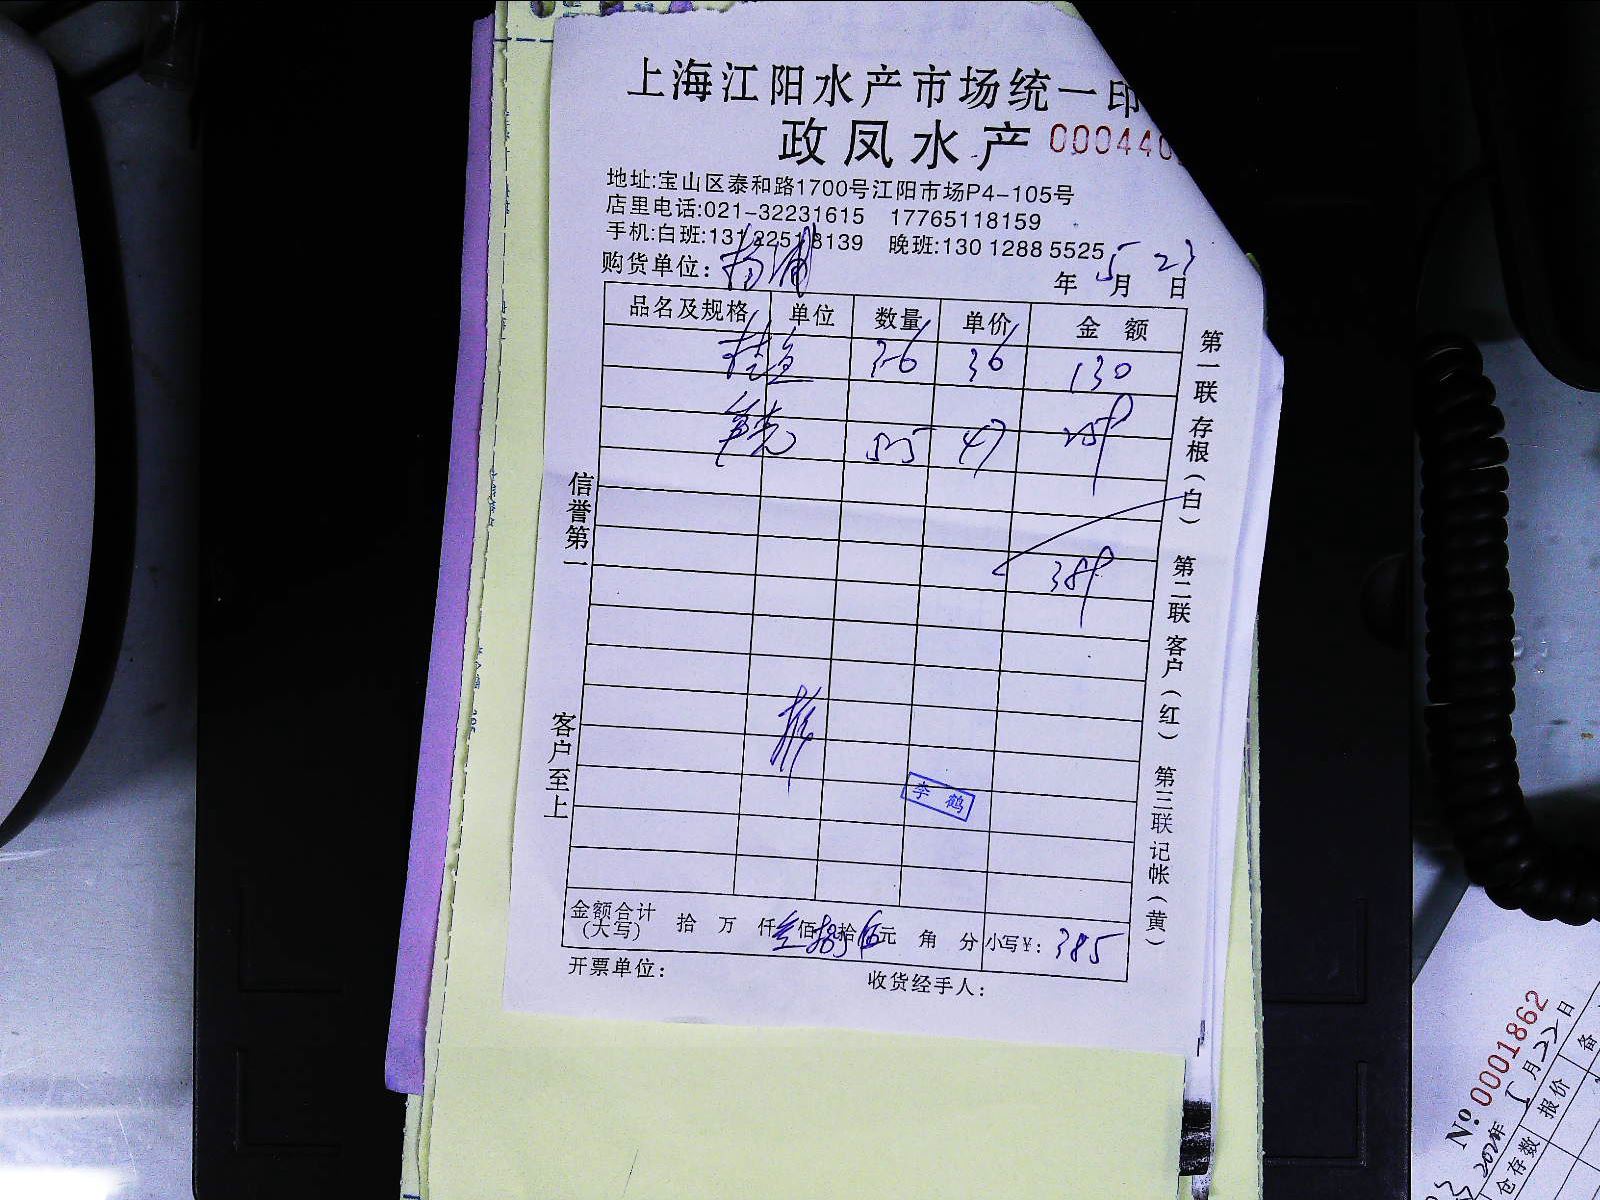 上海江阳水产市场统一印
政凤水产 000440
地址:宝山区泰和路1700号江阳市场P4-105号
店里电话:021-32231615 17765118159
手机:白班:131 2251 8139 晚班:130 1288 5525
购货单位: 杨浦 年 5月 23日
品名及规格 单位 数量 单价 金额
桂鱼 3.6 36 130
5.5 47 259
389
李鹤
金额合计(大写) 拾 万 仟 叁佰 捌拾 伍元 角 分 小写¥: 385
开票单位: 收货经手人:
信誉第一
客户至上
第一联 存根(白) 第二联 客户(红) 第三联 记帐(黄)
No 0001862
月22日
备
报价
仓存数